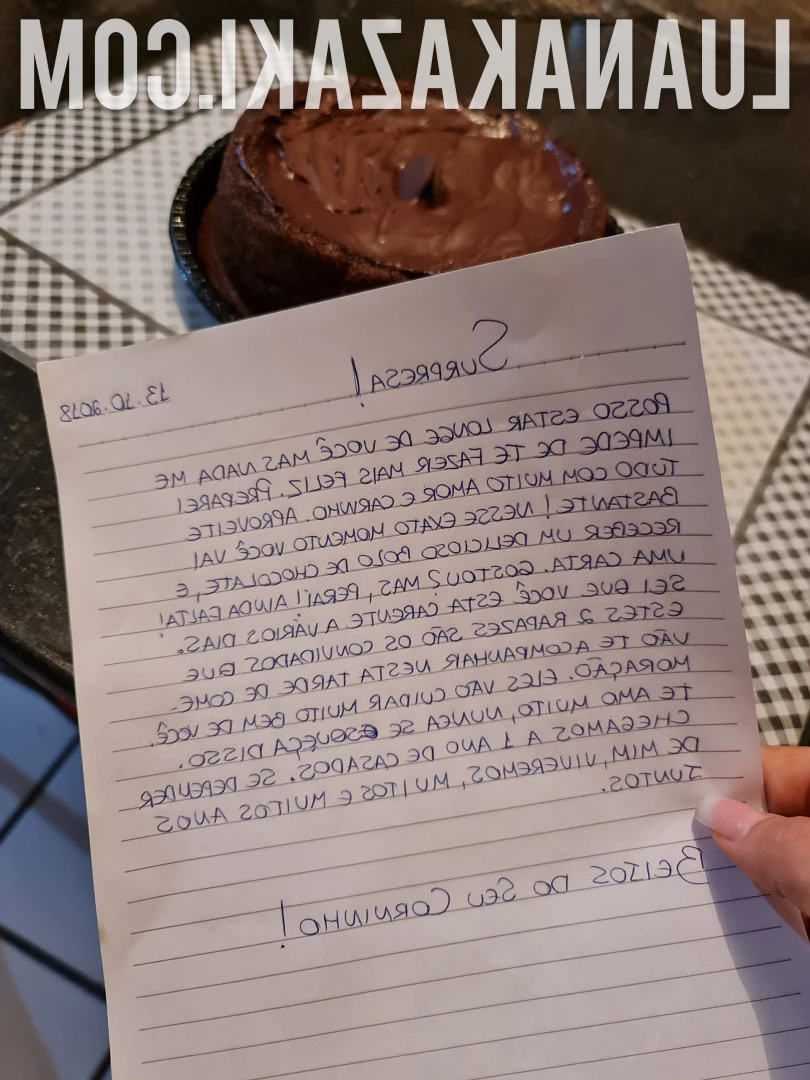 LUANAKAZAKI.COM
SURPRESA!
13.10.2018
POSSO ESTAR LONGE DE VOCÊ MAS NADA ME
IMPEDE DE TE FAZER MAIS FELIZ. PREPAREI
TUDO COM MUITO AMOR E CARINHO. APROVEITE
BASTANTE! NESSE EXATO MOMENTO VOCÊ VAI
RECEBER UM DELICIOSO BOLO DE CHOCOLATE, E
UMA CARTA. GOSTOU? MAS, PERAI! AINDA FALTA!
SEI QUE VOCÊ ESTA CARENTE A VÁRIOS DIAS.
ESTES 2 RAPAZES SÃO OS CONVIDADOS QUE
VÃO TE ACOMPANHAR NESTA TARDE DE COME-
MORAÇÃO. ELES VÃO CUIDAR MUITO BEM DE VOCÊ.
TE AMO MUITO, NUNCA SE ESQUEÇA DISSO.
CHEGAMOS A 1 ANO DE CASADOS. SE DEPENDER
DE MIM, VIVEREMOS, MUITOS E MUITOS ANOS
JUNTOS.
BEIJOS DO SEU CORNINHO!